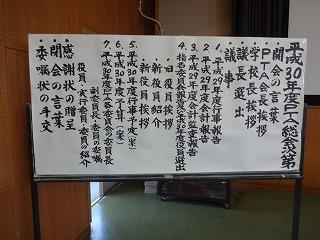 平成30年度PTA総会次第
開会の言葉
PTA会長挨拶
学校長挨拶
議長選出
議事
1. 平成29年度行事報告
2. 平成29年度会計報告
3. 平成29年度会計監査報告
4. 指名委員会報告及び30年度役員選出
・旧役員挨拶
・新役員紹介
・新役員挨拶
5. 平成30年度行事予定(案)
6. 平成30年度予算(案)
7. 平成30年度PTA各委員会の委員長
副委員長・委員の委嘱
役員・実行委員・委員の紹介
感謝状の贈呈
閉会の言葉
委嘱状の手交